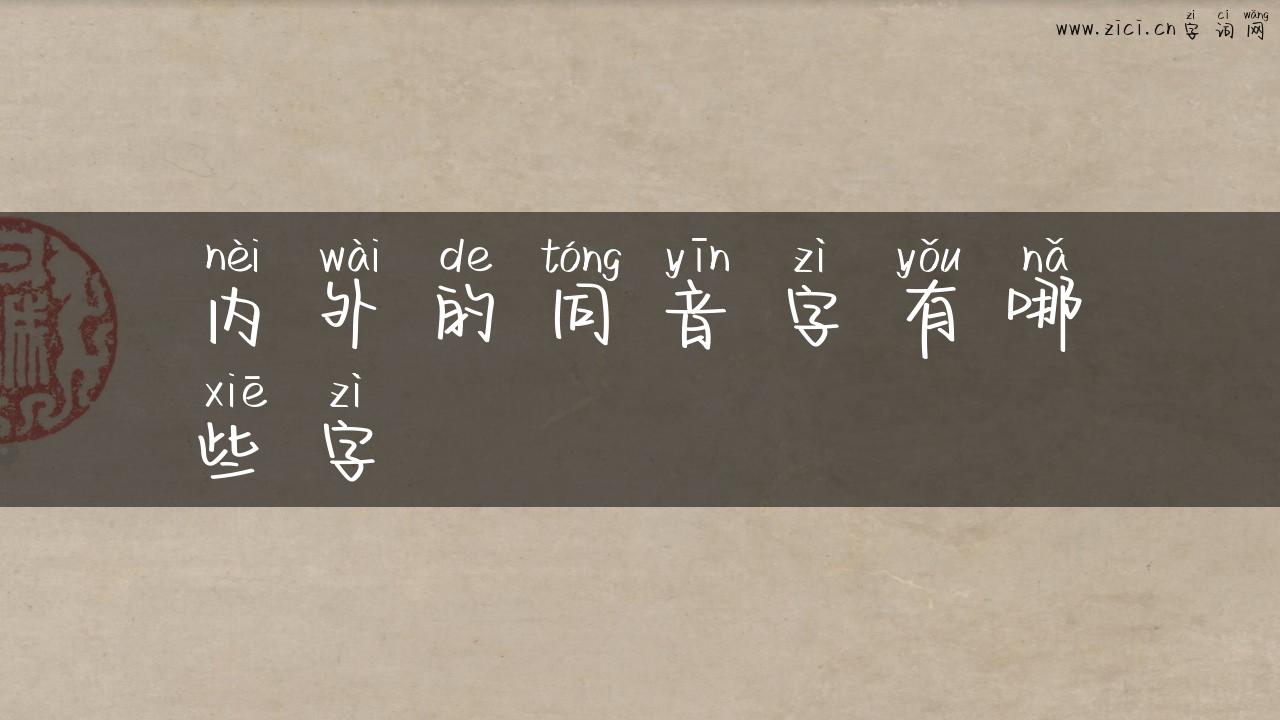 zì cí wǎng
www.zici.cn字词网
nèi wài de tóng yīn zì yǒu nǎ
内外的同音字有哪
xiē zì
些字